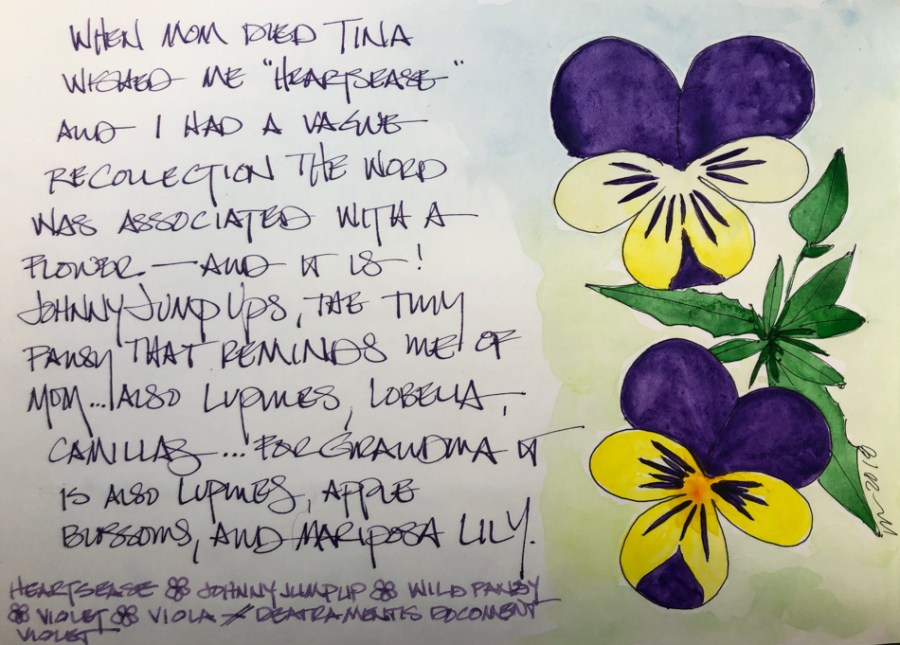 WHEN MOM DIED TINA
WISHED ME "HEARTSEASE"
AND I HAD A VAGUE
RECOLLECTION THE WORD
WAS ASSOCIATED WITH A
FLOWER — AND IT IS!
JOHNNY JUMP UPS, THE TINY
PANSY THAT REMINDS ME OF
MOM... ALSO LUPINES, LOBELIA,
CAMILLAS... FOR GRANDMA IT
IS ALSO LUPINES, APPLE
BLOSSOMS, AND MARIPOSA LILY.
HEARTSEASE JOHNNY JUMP UP WILD PANSY
VIOLET VIOLA // DEATRAMENTIS DOCUMENT
VIOLET